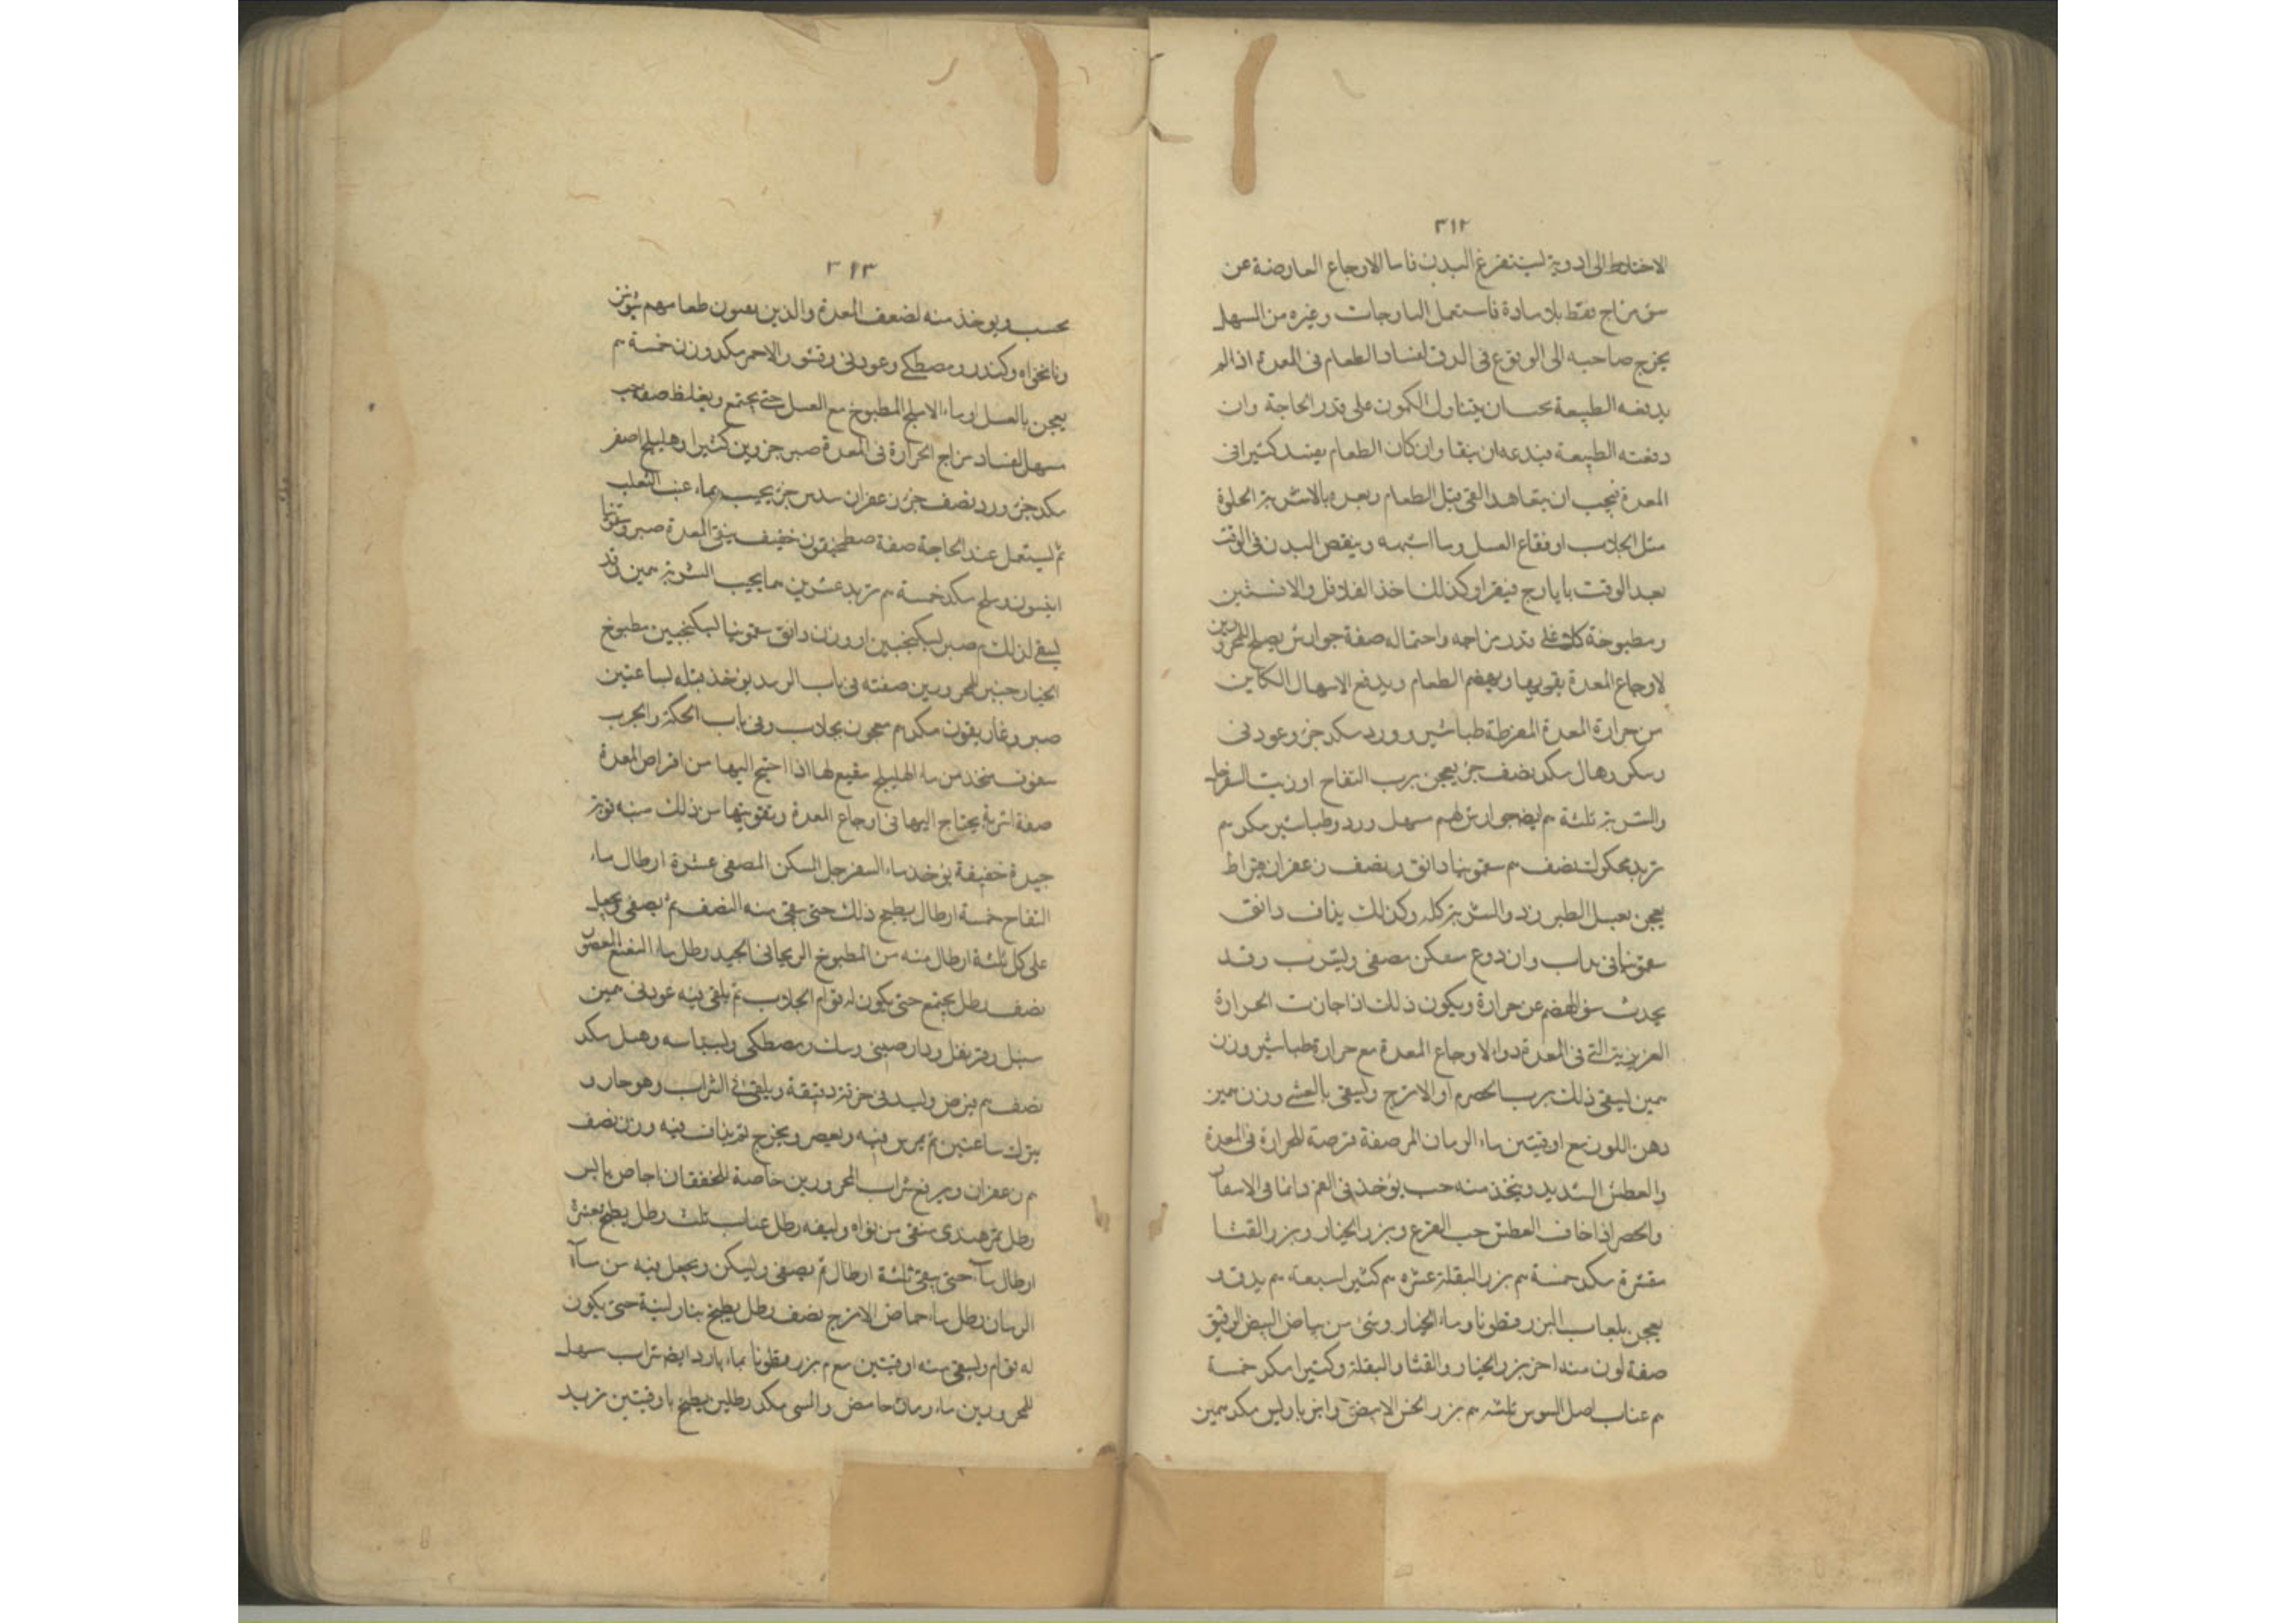 ٣١٢
الاختلاط الى ادوية ليستفرغ البدن فاما الاوجاع العارضة عن
سو مزاج فقط بلا مادة فاستعمل اليارجات وغيره من السهل
يخرج صاحبه الى الوقوع في الدق لفساد الطعام في المعدة اذا لم
يدفعه الطبيعة يتناول الكمون على قدر الحاجة وان
دفعته الطبيعة وان كان الطعام يفسد كثيرا في
المعدة فيجب ان يتعاهد القي قبل الطعام وبعده بالاشربة الحلوة
مثل الجلاب او فقاع العسل وما اشبهه وينقص البدن في الوقت
بعد الوقت بايارج فيقرا وكذلك اخذ الفلافل والافسنتين
ومطبوخة كل على قدر مزاجه واحتماله صفة جوارش يصلح للمحرورين
لاوجاع المعدة يقويها ويهضم الطعام ويدفع الاسهال الكاين
من حرارة المعدة المفرطة طباشير وورد مكد جز وعود ني
وسكر وهال مكد نصف جز يعجن برب التفاح او السفرجل
والشربة ثلثة م ايضا جوارش لهم مسهل ورد وطباشير مكد م
تربد محكوك نصف م سقمونيا دانق ونصف زعفران قيراط
يعجن بعسل الطبرزد والشربة كله وكذلك يذاف دانق
سقمونيا في وان دوع مصفى ويشرب وقد
يحدث سو الهضم عن حرارة ويكون ذلك اذا جازت الحرارة
العزيزية التي في المعدة دوا لاوجاع المعدة مع حرارة طباشير وزن
يسقى ذلك برب الحصرم او الاترج ويسقى بالعشي وزن
دهن اللوز مع اوقيتين ماء الرمان المر صفة قرصة للحرارة في المعدة
والعطش الشديد ويتخذ منه حب يوخذ في الفم دائما في الاسفار
والحصر اذا خاف العطش حب القرع وبزر الخيار وبزر القثا
مقشرة مكد خمسة م بزر البقلة عشره م كثيرا سبعة م يدق و
يعجن بلعاب البزرقطونا وماء الخيار وشي من بياض البيض الرقيق
صفة لون منه اخر بزر الخيار والقثا والبقلة وكثيرا مكد خمسة
م عناب اصل السوس ثلثه م بزر الخس الابيض وانبرباريس مكد
٣١٣
يحبب ويوخذ منه لضعف المعدة والذين طعامهم شونيز
ونانخواه وكندر ومصطكي وعود ني وقشور الاحمر مكد وزن خمسة م
يعجن بالعسل او ماء الاملج المطبوخ مع العسل حتى يجتمع ويغلظ صفة حب
مسهل لفساد مزاج الحرارة في المعدة صبر جزوين كثيرا وهليلج اصفر
مكد جز ورد نصف جز زعفران سدس جز يحبب بماء عنب الثعلب
ثم يستعمل عند الحاجة صفة خفيف ينقي المعدة صبر وسقمونيا
انيسون وملح مكد خمسة م تربد عشرين الشربة وقد
يسقى لذلك م صبر بسكنجبين او وزن دانق سقمونيا بسكنجبين مطبوخ
الخيارشنبر للمحرورين صفته في باب الرمد يوخذ قبله بساعتين
صبر وغاريقون مكد م معجون بجلاب وفي باب الحكة والجرب
سفوف يتخذ من ماء الهليلج نقيع لها اذا احتيج اليها من اقراص المعدة
صفة اشربة يحتاج اليها في اوجاع المعدة وتقويتها من ذلك
جيدة خفيفة يوخذ ماء السفرجل المسكن المصفى عشرة ارطال ماء
التفاح خمسة ارطال يطبخ ذلك حتى يبقى منه النصف ثم يصفى ويجعل
على كل ثلثة ارطال منه من المطبوخ الريحاني الجيد رطل ماء النعنع المعصور
نصف رطل يجتمع حتى يكون له قوام الجلاب ثم يلقى فيه عود ني
سنبل وقرنفل ودارصيني ومصطكي وبسباسه وهيل مكد
نصف م يرض ويشد في خرقة دقيقة ويلقى في الشراب وهو حار و
يترك ساعتين ثم يمرس فيه ويعصر ويخرج ثم يذاف فيه وزن نصف
م زعفران ويرفع شراب المحرورين خاصة للخفقان اجاص يابس
رطل تمر هندي منقى من نواه وليفه رطل عناب ثلث رطل يطبخ بعشرة
ارطال ماء حتى يبقى ثلثة ارطال ثم يصفى ويسكن ويجعل فيه من ماء
الرمان رطل ماء حماض الاترج نصف رطل يطبخ بنار لينة حتى يكون
له قوام ويسقى منه اوقيتين مع م بزرقطونا بماء بارد ايضا شراب سهل
للمحرورين ماء رمان حامض مكد رطلين يطبخ باوقيتين تربد